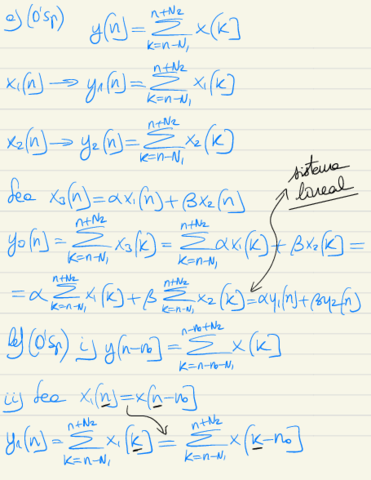 a) (0'5p) y[n] = \sum_{k=n-N_1}^{n+N_2} x[k]
x_1[n] → y_1[n] = \sum_{k=n-N_1}^{n+N_2} x_1[k]
x_2[n] → y_2[n] = \sum_{k=n-N_1}^{n+N_2} x_2[k]
sistema
lineal
Sea x_3[n] = αx_1[n] + βx_2[n]
y_3[n] = \sum_{k=n-N_1}^{n+N_2} x_3[k] = \sum_{k=n-N_1}^{n+N_2} αx_1[k] + βx_2[k] =
= α \sum_{k=n-N_1}^{n+N_2} x_1[k] + β \sum_{k=n-N_1}^{n+N_2} x_2[k] = αy_1[n] + βy_2[n]
b) (0'5p) i) y[n-n_0] = \sum_{k=n-n_0-N_1}^{n-n_0+N_2} x[k]
ii) Sea x_1[n] = x[n-n_0]
y_1[n] = \sum_{k=n-N_1}^{n+N_2} x_1[k] = \sum_{k=n-N_1}^{n+N_2} x[k-n_0]